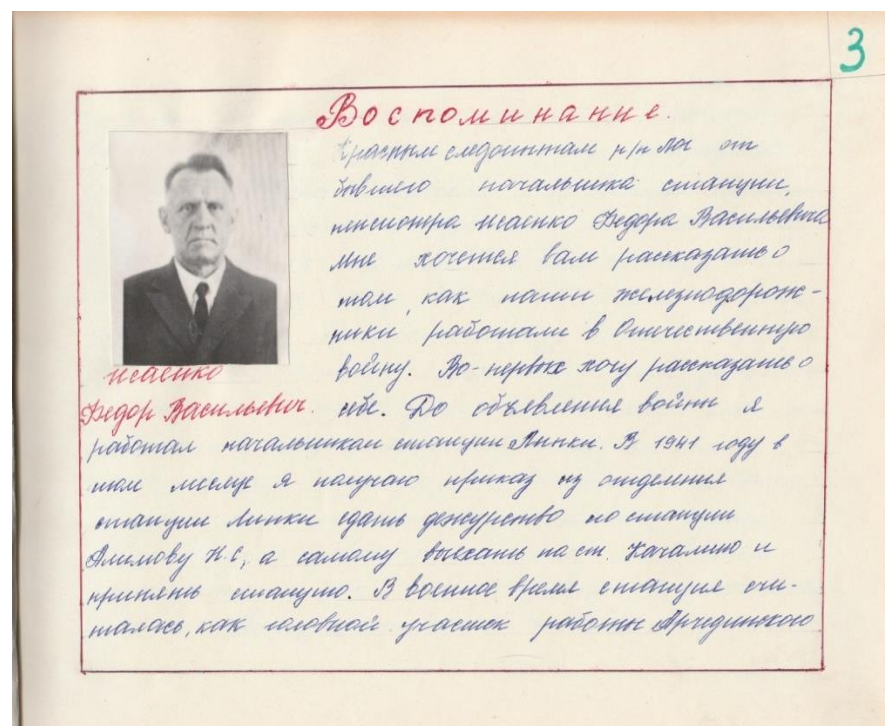 3
Воспоминание.
Красным следопытам р/п Лог от
бывшего начальника станции,
пенсионера Исаенко Федора Васильевича
Мне хочется вам рассказать о
том, как наши железнодорож-
ники работали в Отечественную
войну. Во-первых хочу рассказать о
себе. До объявления войны я
Исаенко
Федор Васильевич.
работал начальником станции Липки. В 1941 году в
июле месяце я получаю приказ из отделения
станции Липки сдать дежурство по станции
Алимову Н.С, а самому выехать на ст. Качалино и
принять станцию. В военное время станция счи-
талась, как головной участок работы Арчединского